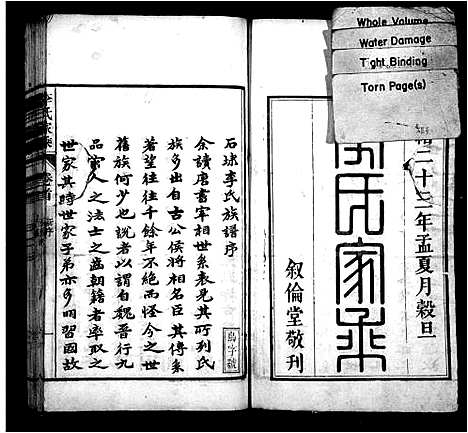 Whole Volume
Water Damage
Tight Binding
Torn Page(s)
二十二年孟夏月榖旦
氏家乘
叙倫堂敬刊
石球李氏族譜序
余讀唐書宰相世系表見其所列氏
族多出自古公侯將相名臣其傳系
著望往往千餘年不絶而怪今之世
舊族何少也說者以謂自魏晉行九
品官人之法士之齒朝籍者率取之
世家其時世家子弟亦多明習國故
烏字號
李氏家乘
卷首